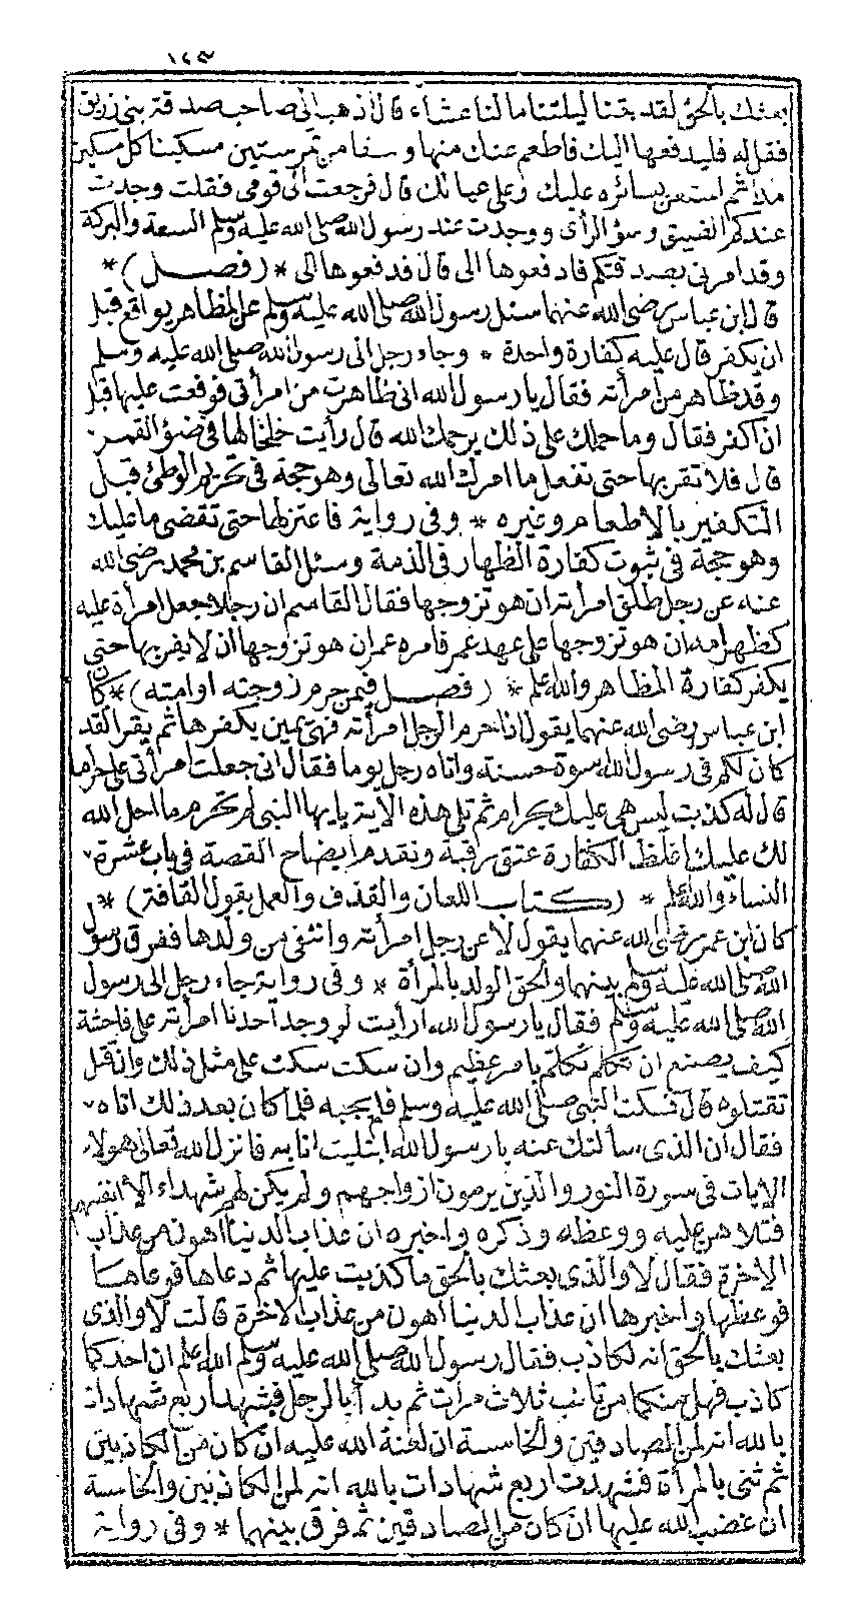 ١٤٣
بعثك بالحق لقد بتنا ليلتنا مالنا عشاء قال اذهب الى صاحب صدقة بنى زريق
فقل له فليدفعها اليك فاطعم عنك منها وسقا من تمر ستين مسكينا كل مسكين
مدا ثم استعن بسائره عليك وعلى عيالك قال فرجعت الى قومى فقلت وجدت
عندكم الضيق وسؤ الرأى ووجدت عند رسول الله صلى الله عليه وسلم السعة والبركة
وقد امرنى بصدقتكم فادفعوها الى قال فدفعوها الى * (فصل) *
قال ابن عباس رضى الله عنهما سئل رسول الله صلى الله عليه وسلم عن المظاهر يواقع قبل
ان يكفر قال عليه كفارة واحدة * وجاء رجل الى رسول الله صلى الله عليه وسلم
وقد ظاهر من امرأته فقال يا رسول الله انى ظاهرت من امرأتى فوقعت عليها قبل
ان اكفر فقال وما حملك على ذلك يرحمك الله قال رأيت خلخالها فى ضؤ القمر
قال فلا تقربها حتى تفعل ما امرك الله تعالى وهو حجة فى تحريم الوطئ قبل
التكفير بالاطعام وغيره * وفى رواية فاعتزلها حتى تقضى ما عليك
وهو حجة فى ثبوت كفارة الظهار فى الذمة وسئل القاسم بن محمد رضى الله
عنه عن رجل طلق امرأته ان هو تزوجها فقال القاسم ان رجلا جعل امرأة عليه
كظهر امه ان هو تزوجها على عهد عمر فامره عمر ان هو تزوجها ان لا يقربها حتى
يكفر كفارة المظاهر والله اعلم * (فصل فيمن حرم زوجته او امته) * كان
ابن عباس رضى الله عنهما يقول اذا حرم الرجل امرأته فهى يمين يكفرها ثم يقرا لقد
كان لكم فى رسول الله اسوة حسنة واتاه رجل يوما فقال انى جعلت امرأتى على حراما
قال له كذبت ليس هى عليك بحرام ثم تلى هذه الاية يايها النبى لم تحرم ما احل الله
لك عليك اغلظ الكفارة عتق رقبة وتقدم ايضاح القصة فى باب عشرة
النساء والله اعلم * (كتاب اللعان والقذف والعمل بقول القافة) *
كان ابن عمر رضى الله عنهما يقول لاعن رجل امرأته وانتفى من ولدها ففرق رسول
الله صلى الله عليه وسلم بينهما والحق الولد بالمرأة * وفى رواية جاء رجل الى رسول
الله صلى الله عليه وسلم فقال يا رسول الله ارأيت لو وجد احدنا امرأته على فاحشة
كيف يصنع ان تكلم تكلم بامر عظيم وان سكت سكت على مثل ذلك وان قتل
تقتلوه قال فسكت النبى صلى الله عليه وسلم فلم يجبه فلما كان بعد ذلك اتاه
فقال ان الذى سألتك عنه يا رسول الله ابتليت انا به فانزل الله تعالى هولاء
الايات فى سورة النور والذين يرمون ازواجهم ولم يكن لهم شهداء الا انفسهم
فتلاهن عليه ووعظه وذكره واخبره ان عذاب الدنيا اهون من عذاب
الاخرة فقال لا والذى بعثك بالحق ما كذبت عليها ثم دعاها فوعاها
فوعظها واخبرها ان عذاب الدنيا اهون من عذاب الاخرة قالت لا والذى
بعثك بالحق انه لكاذب فقال رسول الله صلى الله عليه وسلم الله اعلم ان احدكما
كاذب فهل منكما من تائب ثلاث مرات ثم بدأ بالرجل فشهد اربع شهادات
بالله انه لمن الصادقين والخامسة ان لعنة الله عليه ان كان من الكاذبين
ثم ثنى بالمرأة فشهدت اربع شهادات بالله انه لمن الكاذبين والخامسة
ان غضب الله عليها ان كان من الصادقين ثم فرق بينهما * وفى رواية